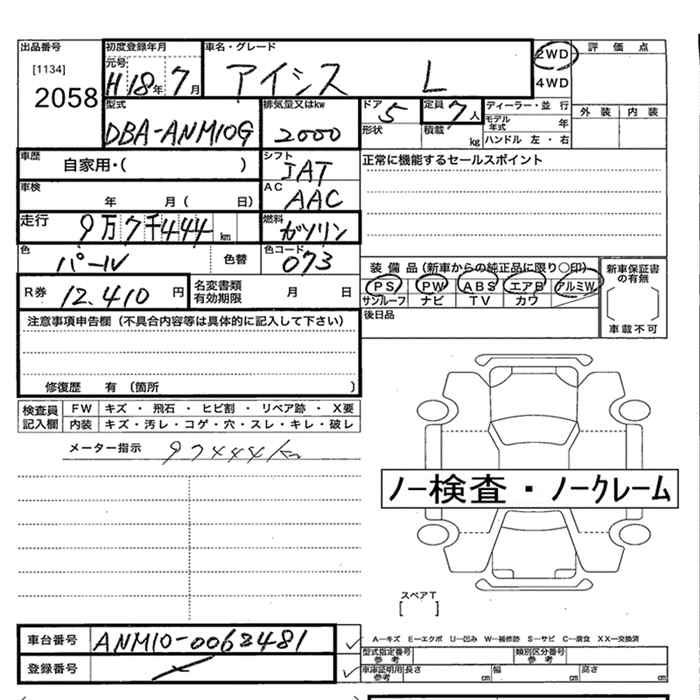 出品番号 初度登録年月 車名・グレード 2WD 評価点
[1134] 元号 H18年7月 アイシス L 4WD
2058 型式 排気量又はkw ドア 5 定員 7人 ディーラー・並行 外装 内装
DBA-ANM10G 2000 形状 積載 kg モデル年式 年
ハンドル 左・右
車歴 自家用・( ) シフト IAT 正常に機能するセールスポイント
車検 年 月( 日) AC AAC
走行 9万7千444km 燃料 ガソリン
色 パール 色替 色コード 073 装備品(新車からの純正品に限り○印) 新車保証書の有無
R券 12.410円 名変書類有効期限 月 日 PS PW ABS エアB アルミW
サンルーフ ナビ TV カワ
注意事項申告欄(不具合内容等は具体的に記入して下さい) 後日品 車載不可
修復歴 有(箇所 )
検査員記入欄 FW キズ・飛石・ヒビ割・リペア跡・X要
内装 キズ・汚レ・コゲ・穴・スレ・キレ・破レ
メーター指示 97444km
ノー検査・ノークレーム
スペアT
[ ]
車台番号 ANM10-0063481 A−キズ E−エクボ U−凹み W−補修跡 S−サビ C−腐食 XX−交換済
型式指定番号 参考 類別区分番号 参考
登録番号 車庫証明用 参考 長さ cm 幅 cm 高さ cm